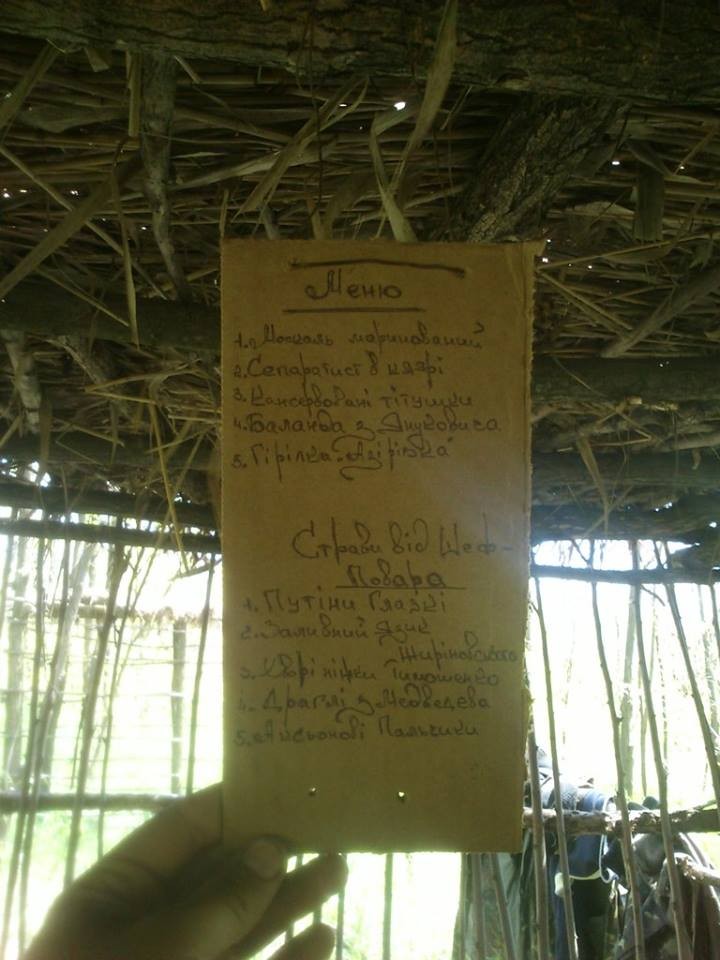 Меню
1. Москаль маринований
2. Сепаратист в клярі
3. Консервовані тітушки
4. Баланда з Януковиса
5. Гірілка "Азірівка"
Страви від Шеф-
Повара
1. Путіни Глазкі
2. Заливний язик
Жиріновського
3. Хворі ніжки Тимошенко
4. Драглі з Медведєва
5. Аксьонові Пальчики